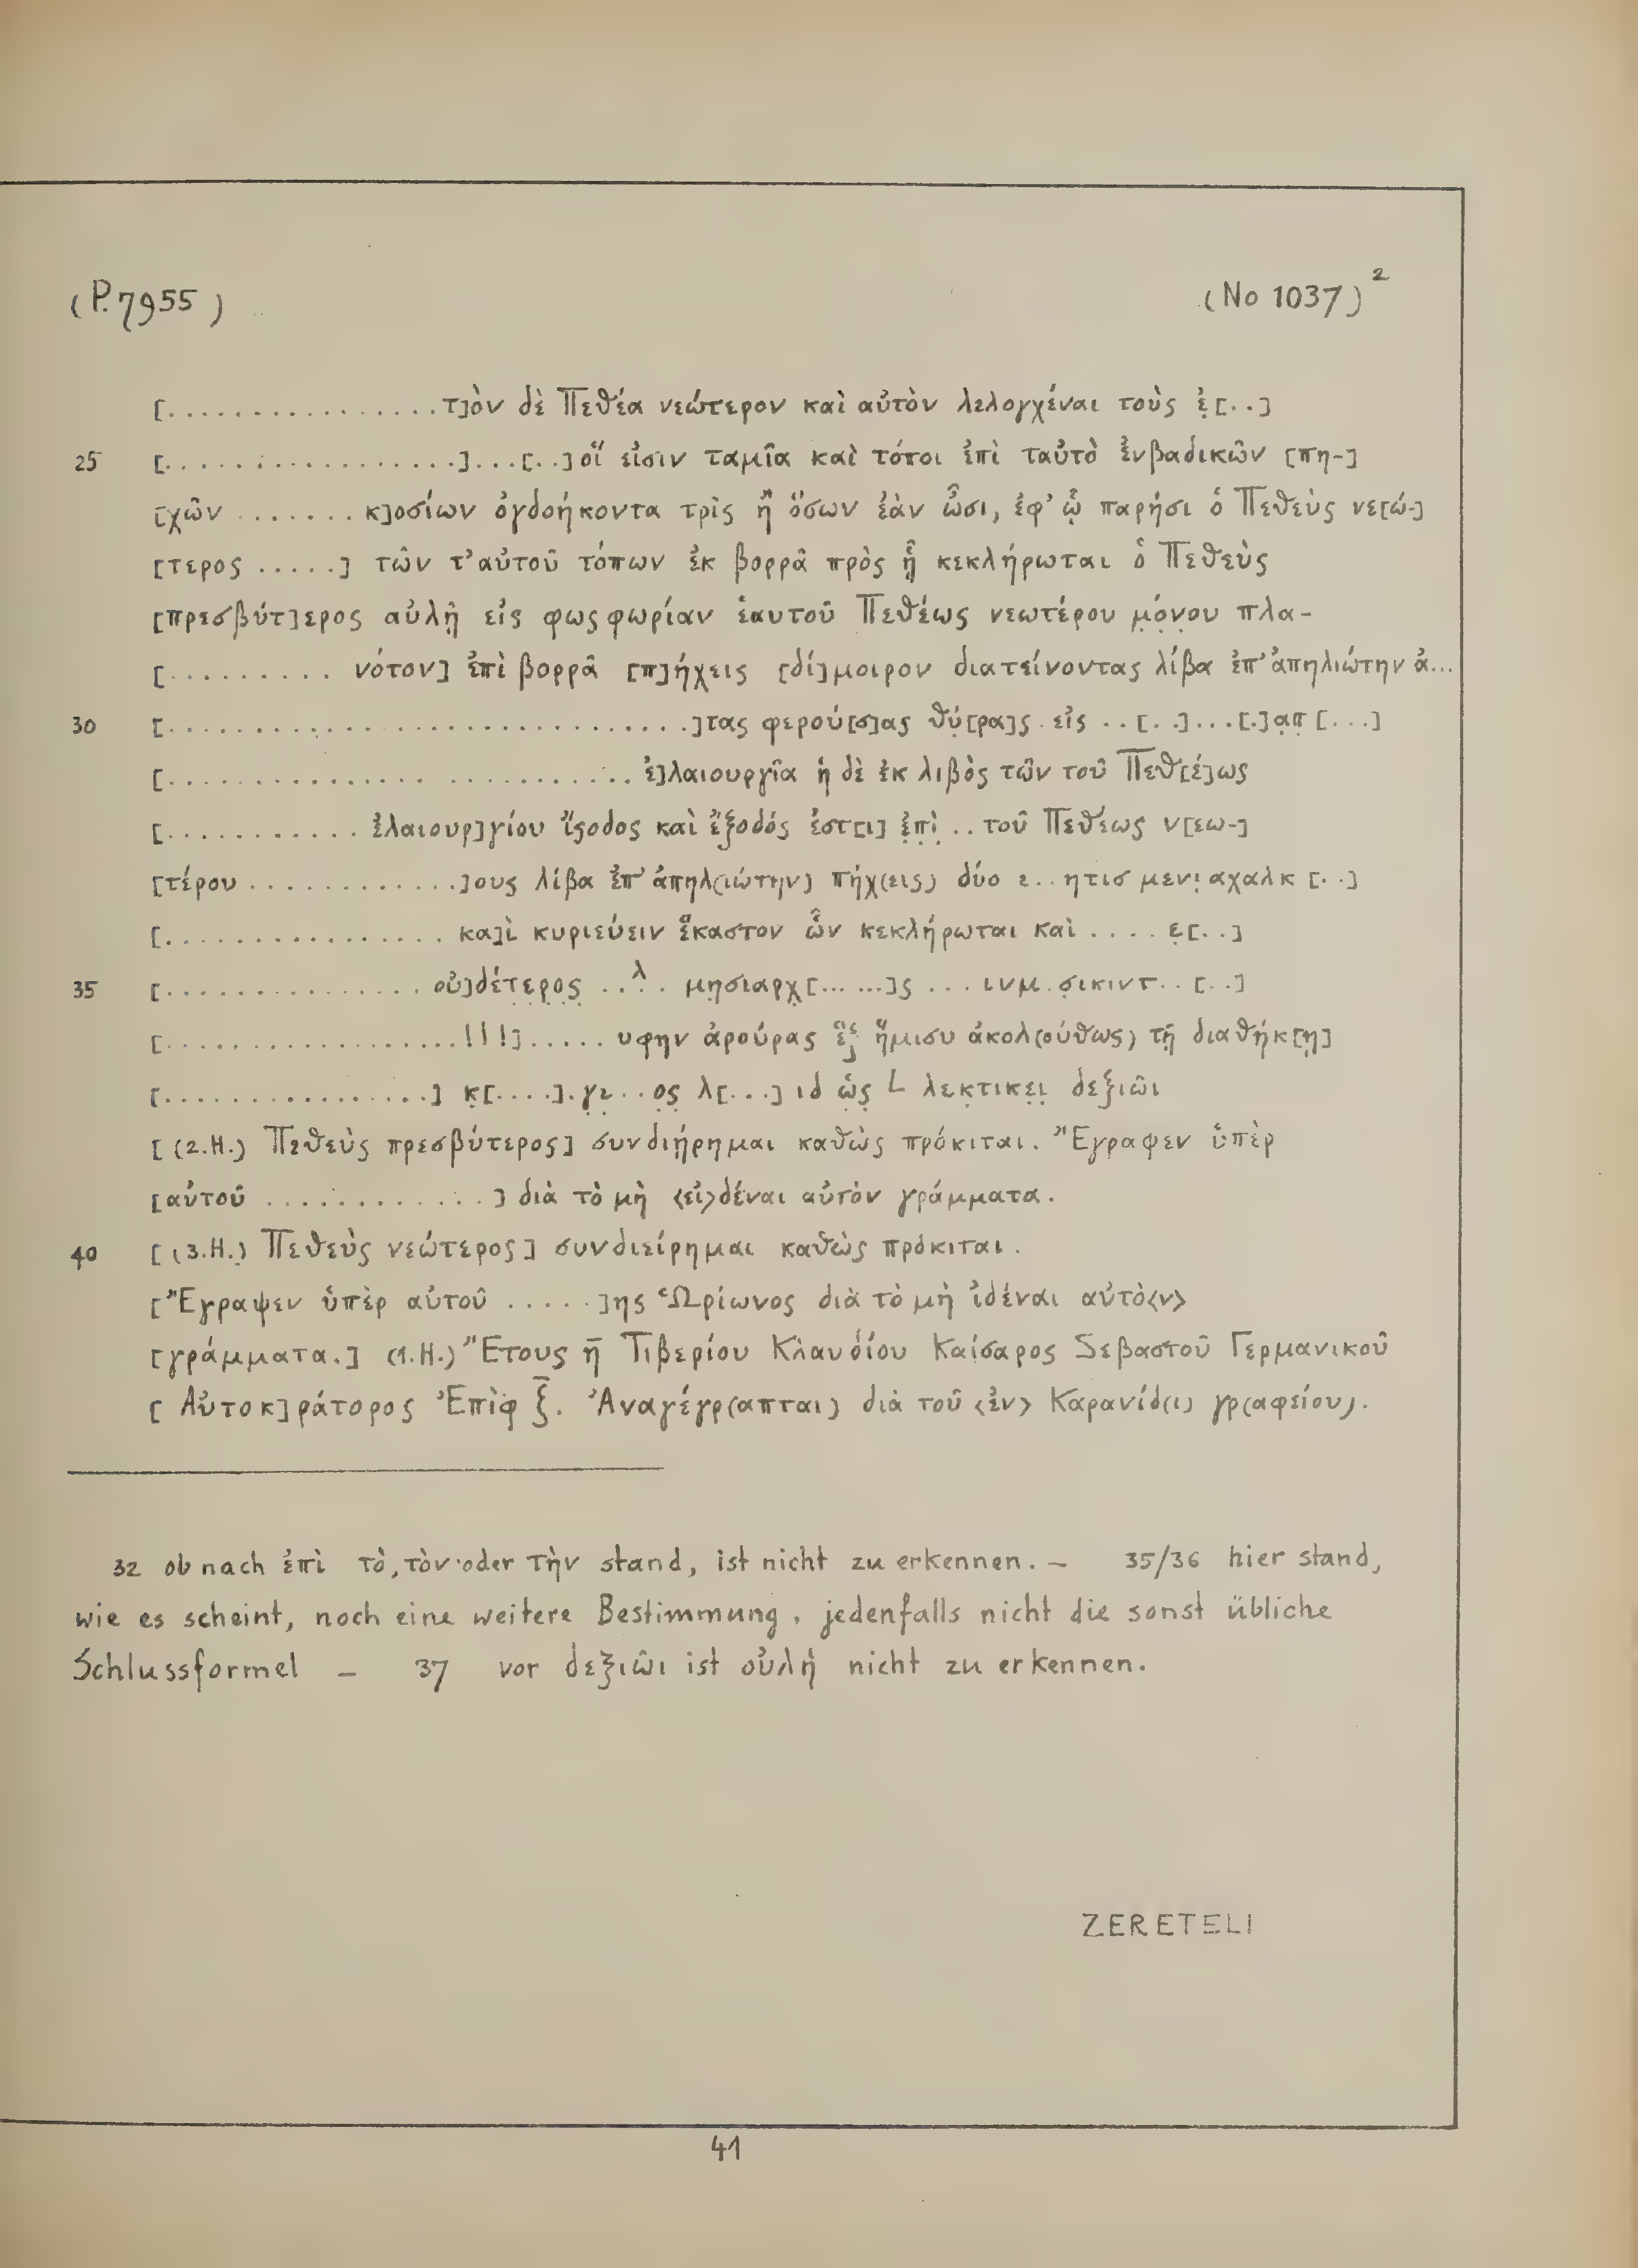 (P. 7955) (No 1037)²
[................τ]ὸν δὲ Πεθέα νεώτερον καὶ αὐτὸν λελογχέναι τοὺς ἐ̣[..]
25 [.................]...[..]οἵ εἰσιν ταμῖα καὶ τόποι ἐπὶ ταὐτὸ ἐνβαδικῶν [πη-]
[χῶν ....... κ]οσίων ὀγδοήκοντα τρὶς ἢ ὅσων ἐὰν ὦσι, ἐφ' ᾧ παρήσι ὁ Πεθεὺς νε[ώ-]
[τερος .....] τῶν τ'αὐτοῦ τόπων ἐκ βορρᾶ πρὸς ᾗ κεκλήρωται ὁ Πεθεὺς
[πρεσβύτ]ερος αὐλῇ εἰς φωςφωρίαν ἑαυτοῦ Πεθέως νεωτέρου μ̣ό̣ν̣ου πλα-
[......... νότον] ἐπὶ βορρᾶ [π]ήχεις [δί]μοιρον διατείνοντας λίβα ἐπ' ἀπηλιώτην ἀ...
30 [..............................]τας φερού[σ]ας θύ[ρα]ς εἰς ..[..]...[.]α̣π̣[...]
[.......................... ἐ]λαιουργῖα ἡ δὲ ἐκ λιβὸς τῶν τοῦ Πεθ[έ]ως
[........... ἐλαιουρ]γίου ἴςοδος καὶ ἔξοδός ἐστ[ι] ἐ̣π̣ὶ̣ .. τοῦ Πεθέως ν[εω-]
[τέρου .............]ους λίβα ἐπ' ἀπηλ(ιώτην) πήχ(εις) δύο ε..ητισ μενι̣ αχαλκ[..]
[................. κα]ὶ κυριεύειν ἕκαστον ὧν κεκλήρωται καὶ .... ε̣[..]
35 [................ οὐ]δέτ̣ε̣ρ̣ο̣ς̣ ..λ. μη̣σιαρχ̣[... ...]ς ... ινμ.σ̣ικιντ..[..]
[...................!!!].....υφην ἀρούρας ἓξ ἥμισυ ἀκολ(ούθως) τῇ διαθήκ[ῃ]
[.................] κ̣[....].γ̣ε̣..ο̣ς̣ λ[...] ιδ ὡ̣ς̣ L λεκ̣τικε̣ι̣ δεξιῶι
[(2.H.) Πεθεὺς πρεσβύτερος] συνδιῄρημαι καθὼς πρόκιται. Ἔγραφεν ὑπὲρ
[αὐτοῦ .............] διὰ τὸ μὴ <εἰ>δέναι αὐτὸν γράμματα.
40 [(3.H.) Πεθεὺς νεώτερος] συνδιείρημαι καθὼς πρόκιται.
[Ἔγραψεν ὑπὲρ αὐτοῦ .....]ης Ὡρίωνος διὰ τὸ μὴ ἰδέναι αὐτὸ<ν>
[γράμματα.] (1.H.) Ἔτους η̄ Τιβερίου Κλαυδίου Καίσαρος Σεβαστοῦ Γερμανικοῦ
[Αὐτοκ]ράτορος Ἐπὶφ ξ̄. Ἀναγέγρ(απται) διὰ τοῦ <ἐν> Καρανίδ(ι) γρ(αφείου).
32 ob nach ἐπὶ τὸ, τὸν oder τὴν stand, ist nicht zu erkennen. — 35/36 hier stand,
wie es scheint, noch eine weitere Bestimmung, jedenfalls nicht die sonst übliche
Schlussformel — 37 vor δεξιῶι ist οὐλὴ nicht zu erkennen.
ZERETELI
41